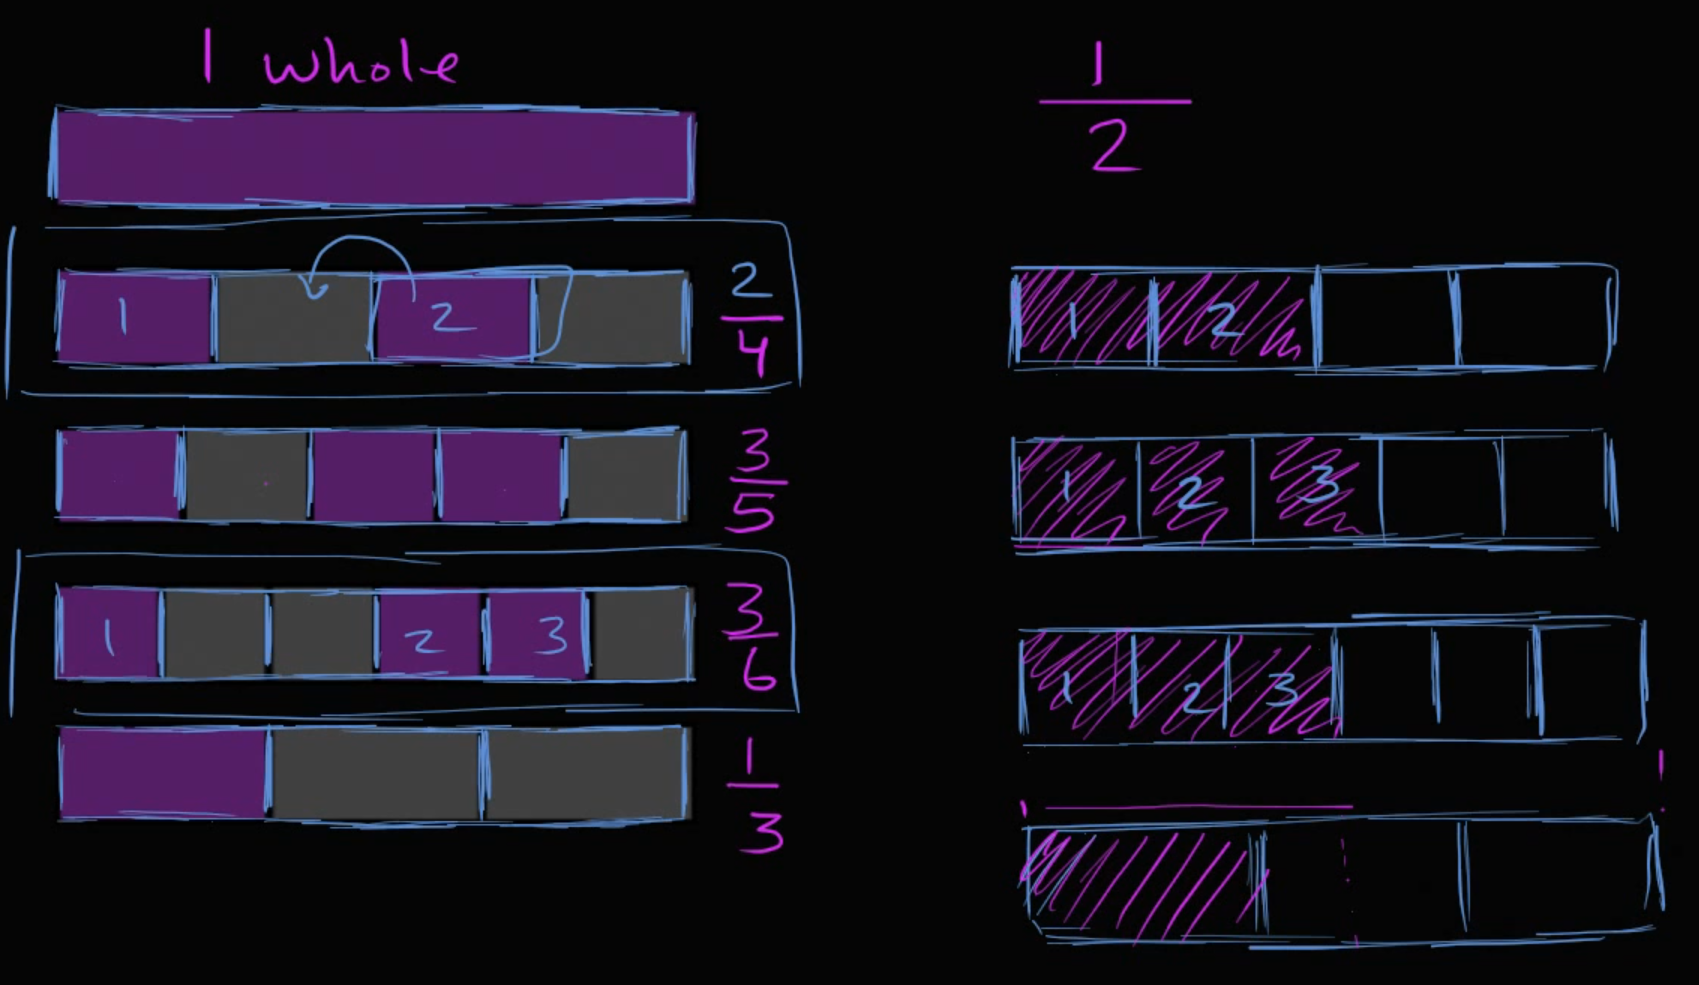 1 whole
1
2
1 2
2
4
3
5
1 2 3
3
6
1
3
1 2
1 2 3
1 2 3